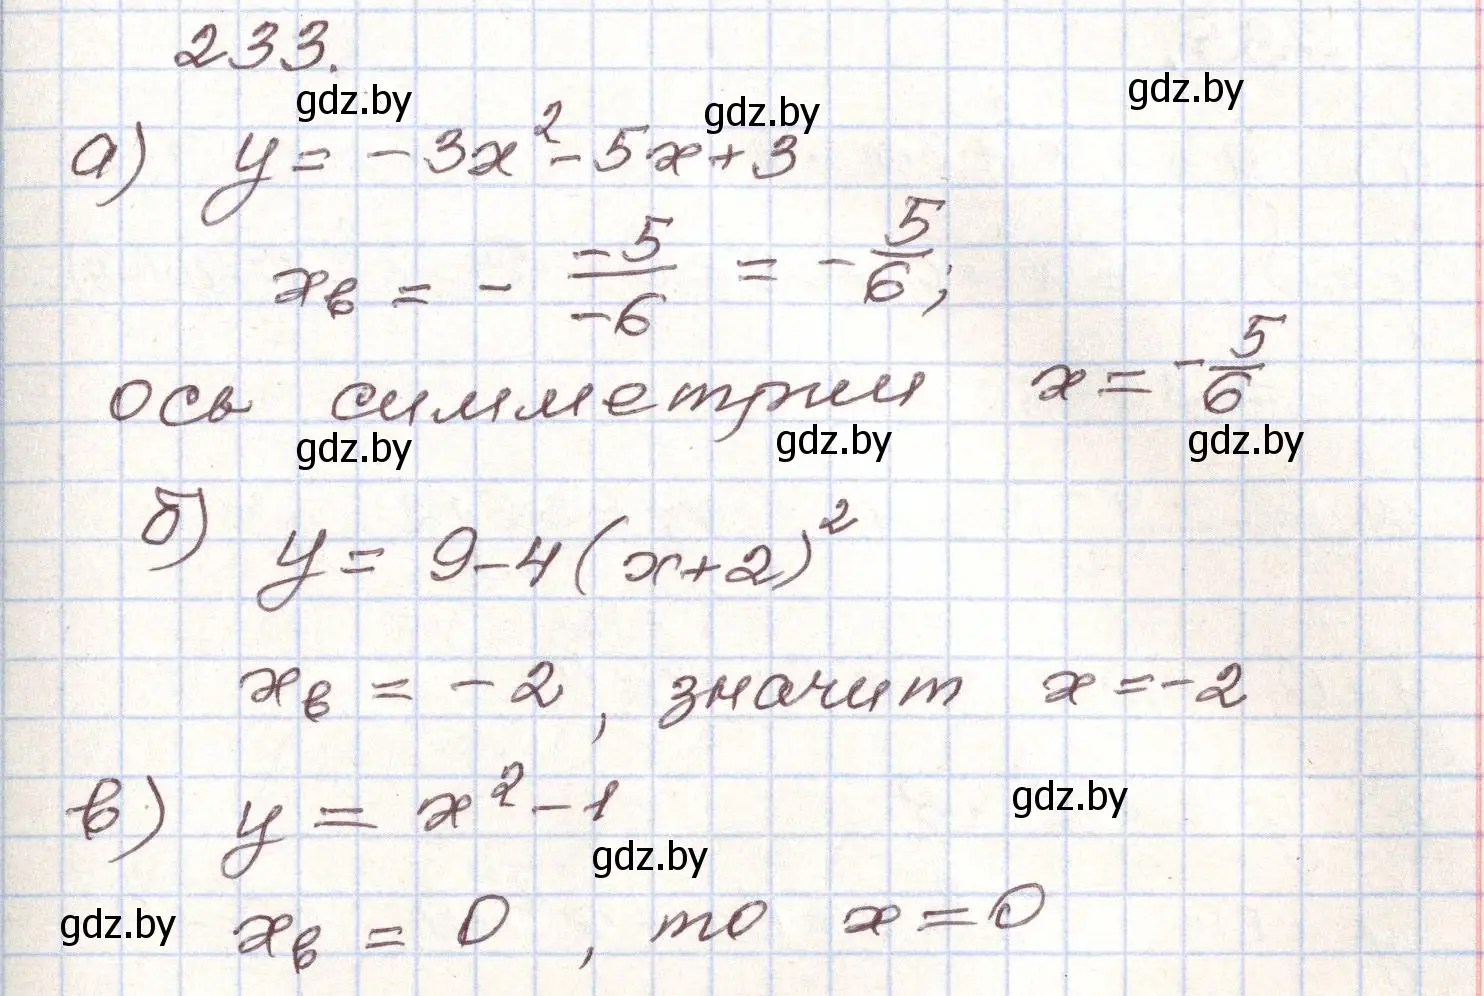 233.
gdz.by gdz.by gdz.by
а) y = -3x² - 5x + 3
xв = - -5/-6 = - 5/6;
ось симметрии x = - 5/6
gdz.by gdz.by gdz.by
б) y = 9 - 4(x+2)²
xв = -2, значит x = -2
в) y = x² - 1
gdz.by
gdz.by
gdz.by
xв = 0, то x = 0